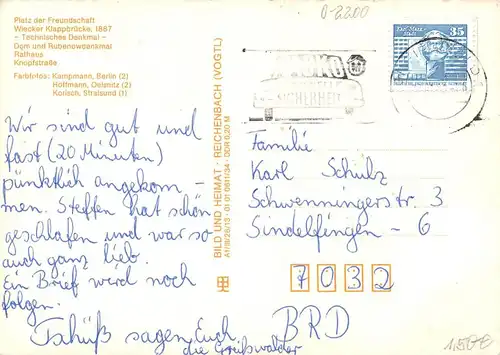 Platz der Freundschaft
Wiecker Klappbrücke, 1887
- Technisches Denkmal -
Dom und Rubenowdenkmal
Rathaus
Knopfstraße
Farbfotos: Kampmann, Berlin (2)
Hoffmann, Oelsnitz (2)
Korisch, Stralsund (1)
Wir sind gut und
fast (20 Minuten)
pünktlich angekom-
men. Steffen hat schön
geschlafen und war so
auch ganz lieb.
Ein Brief wird noch
folgen.
Tschüß sagen Euch
die Greifswalder
BILD UND HEIMAT · REICHENBACH (VOGTL)
0-2200
35
SICHERHEIT
Familie
Karl Schulz
Schwenningerstr. 3
Sindelfingen - 6
7032
BRD
1,50€